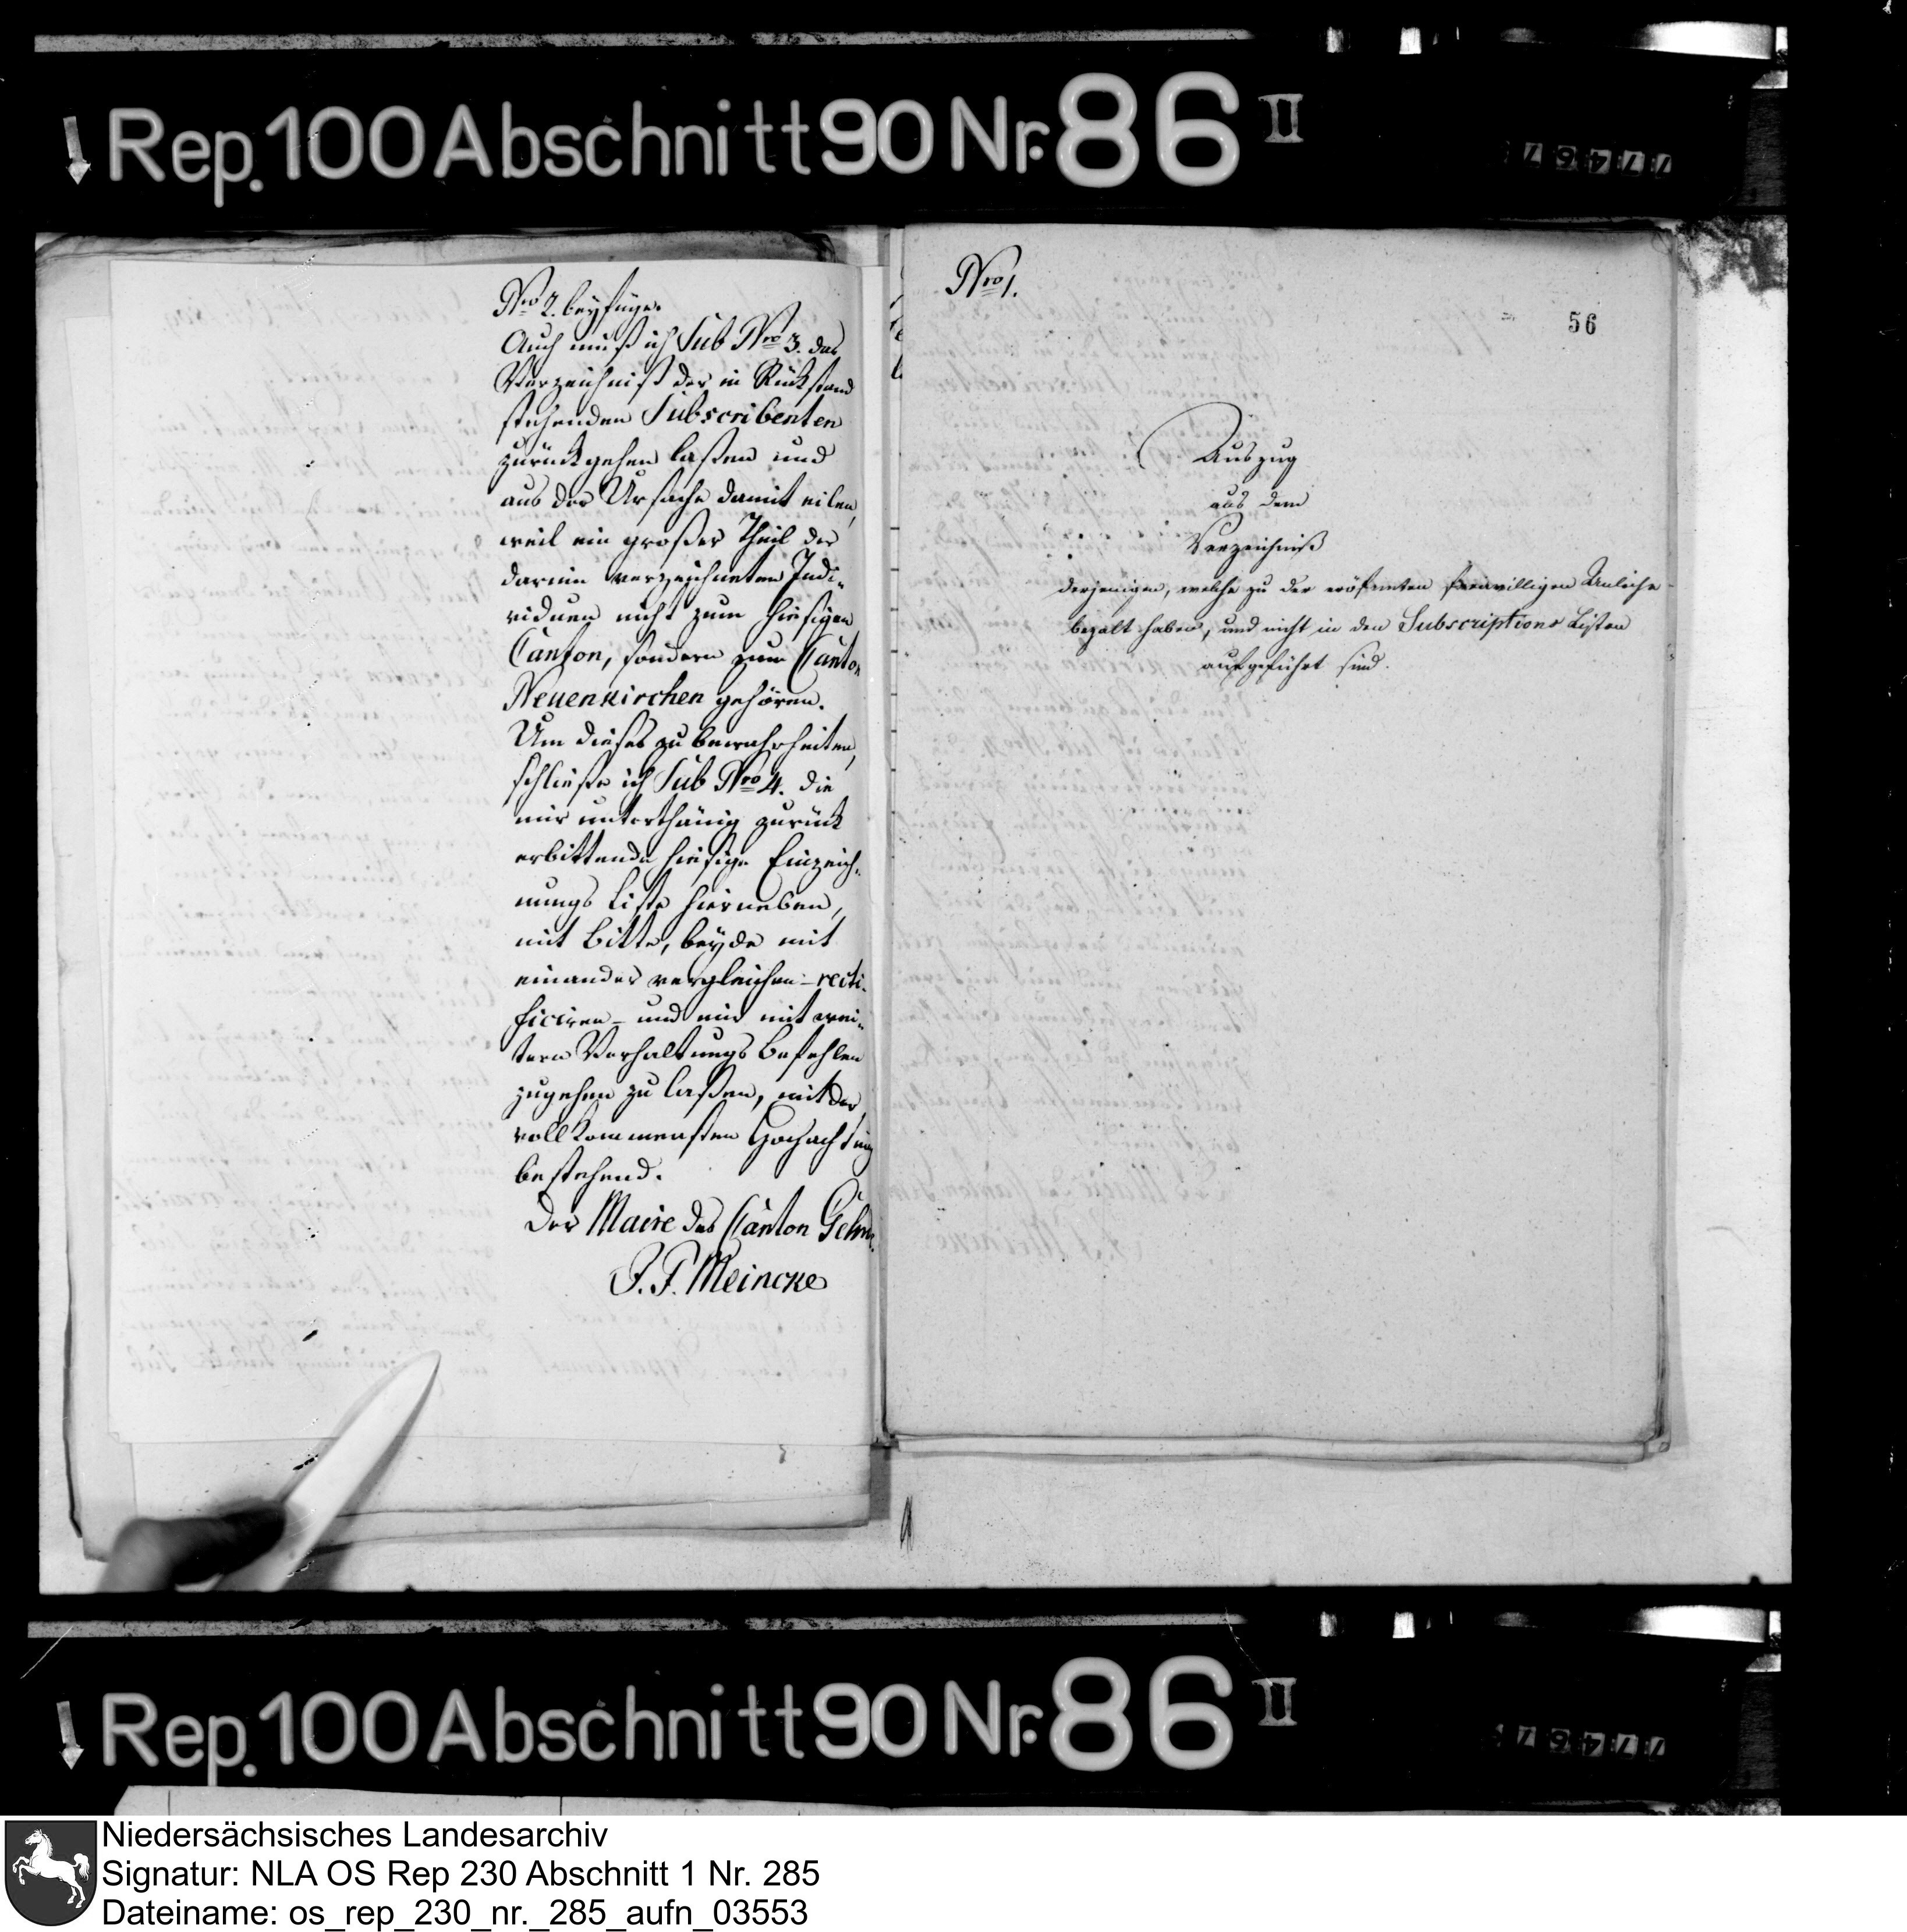 Rep. 100 Abschnitt 90 Nr. 86 II
77467
Nro 2. beyfüge.
Auch muß ich Sub Nro 3. das
Verzeichniß der in Rückstand
stehenden Subscribenten
zurückgehen laßen und
aus der Ursache damit eilen,
weil ein großer Theil der
darin verzeichneten Indi-
viduen nicht zum hiesigen
Canton, sondern zum Canton
Neuenkirchen gehören.
Um dieses zu bewahrheiten,
schließe ich Sub Nro 4. die
mir unterthänig zurück
erbittende hiesige Einzeich-
nungs Liste hierneben,
mit Bitte, beyde mit
einander vergleichen - recti-
ficiren - und mir mit wei-
tern Verhaltungs Befehlen
zugehen zu laßen, mit der
vollkommensten Hochachtung
bestehend.
Der Maire des Canton
Meincke
Nro 1.
56
Auszug
aus dem
Verzeichniß
derjenigen, welche zu der eröfneten freiwilligen Anleihe
bezalt haben, und nicht in den Subscriptions Listen
aufgeführt sind.
Rep. 100 Abschnitt 90 Nr. 86 II
77467
Niedersächsisches Landesarchiv
Signatur: NLA OS Rep 230 Abschnitt 1 Nr. 285
Dateiname: os_rep_230_nr._285_aufn_03553